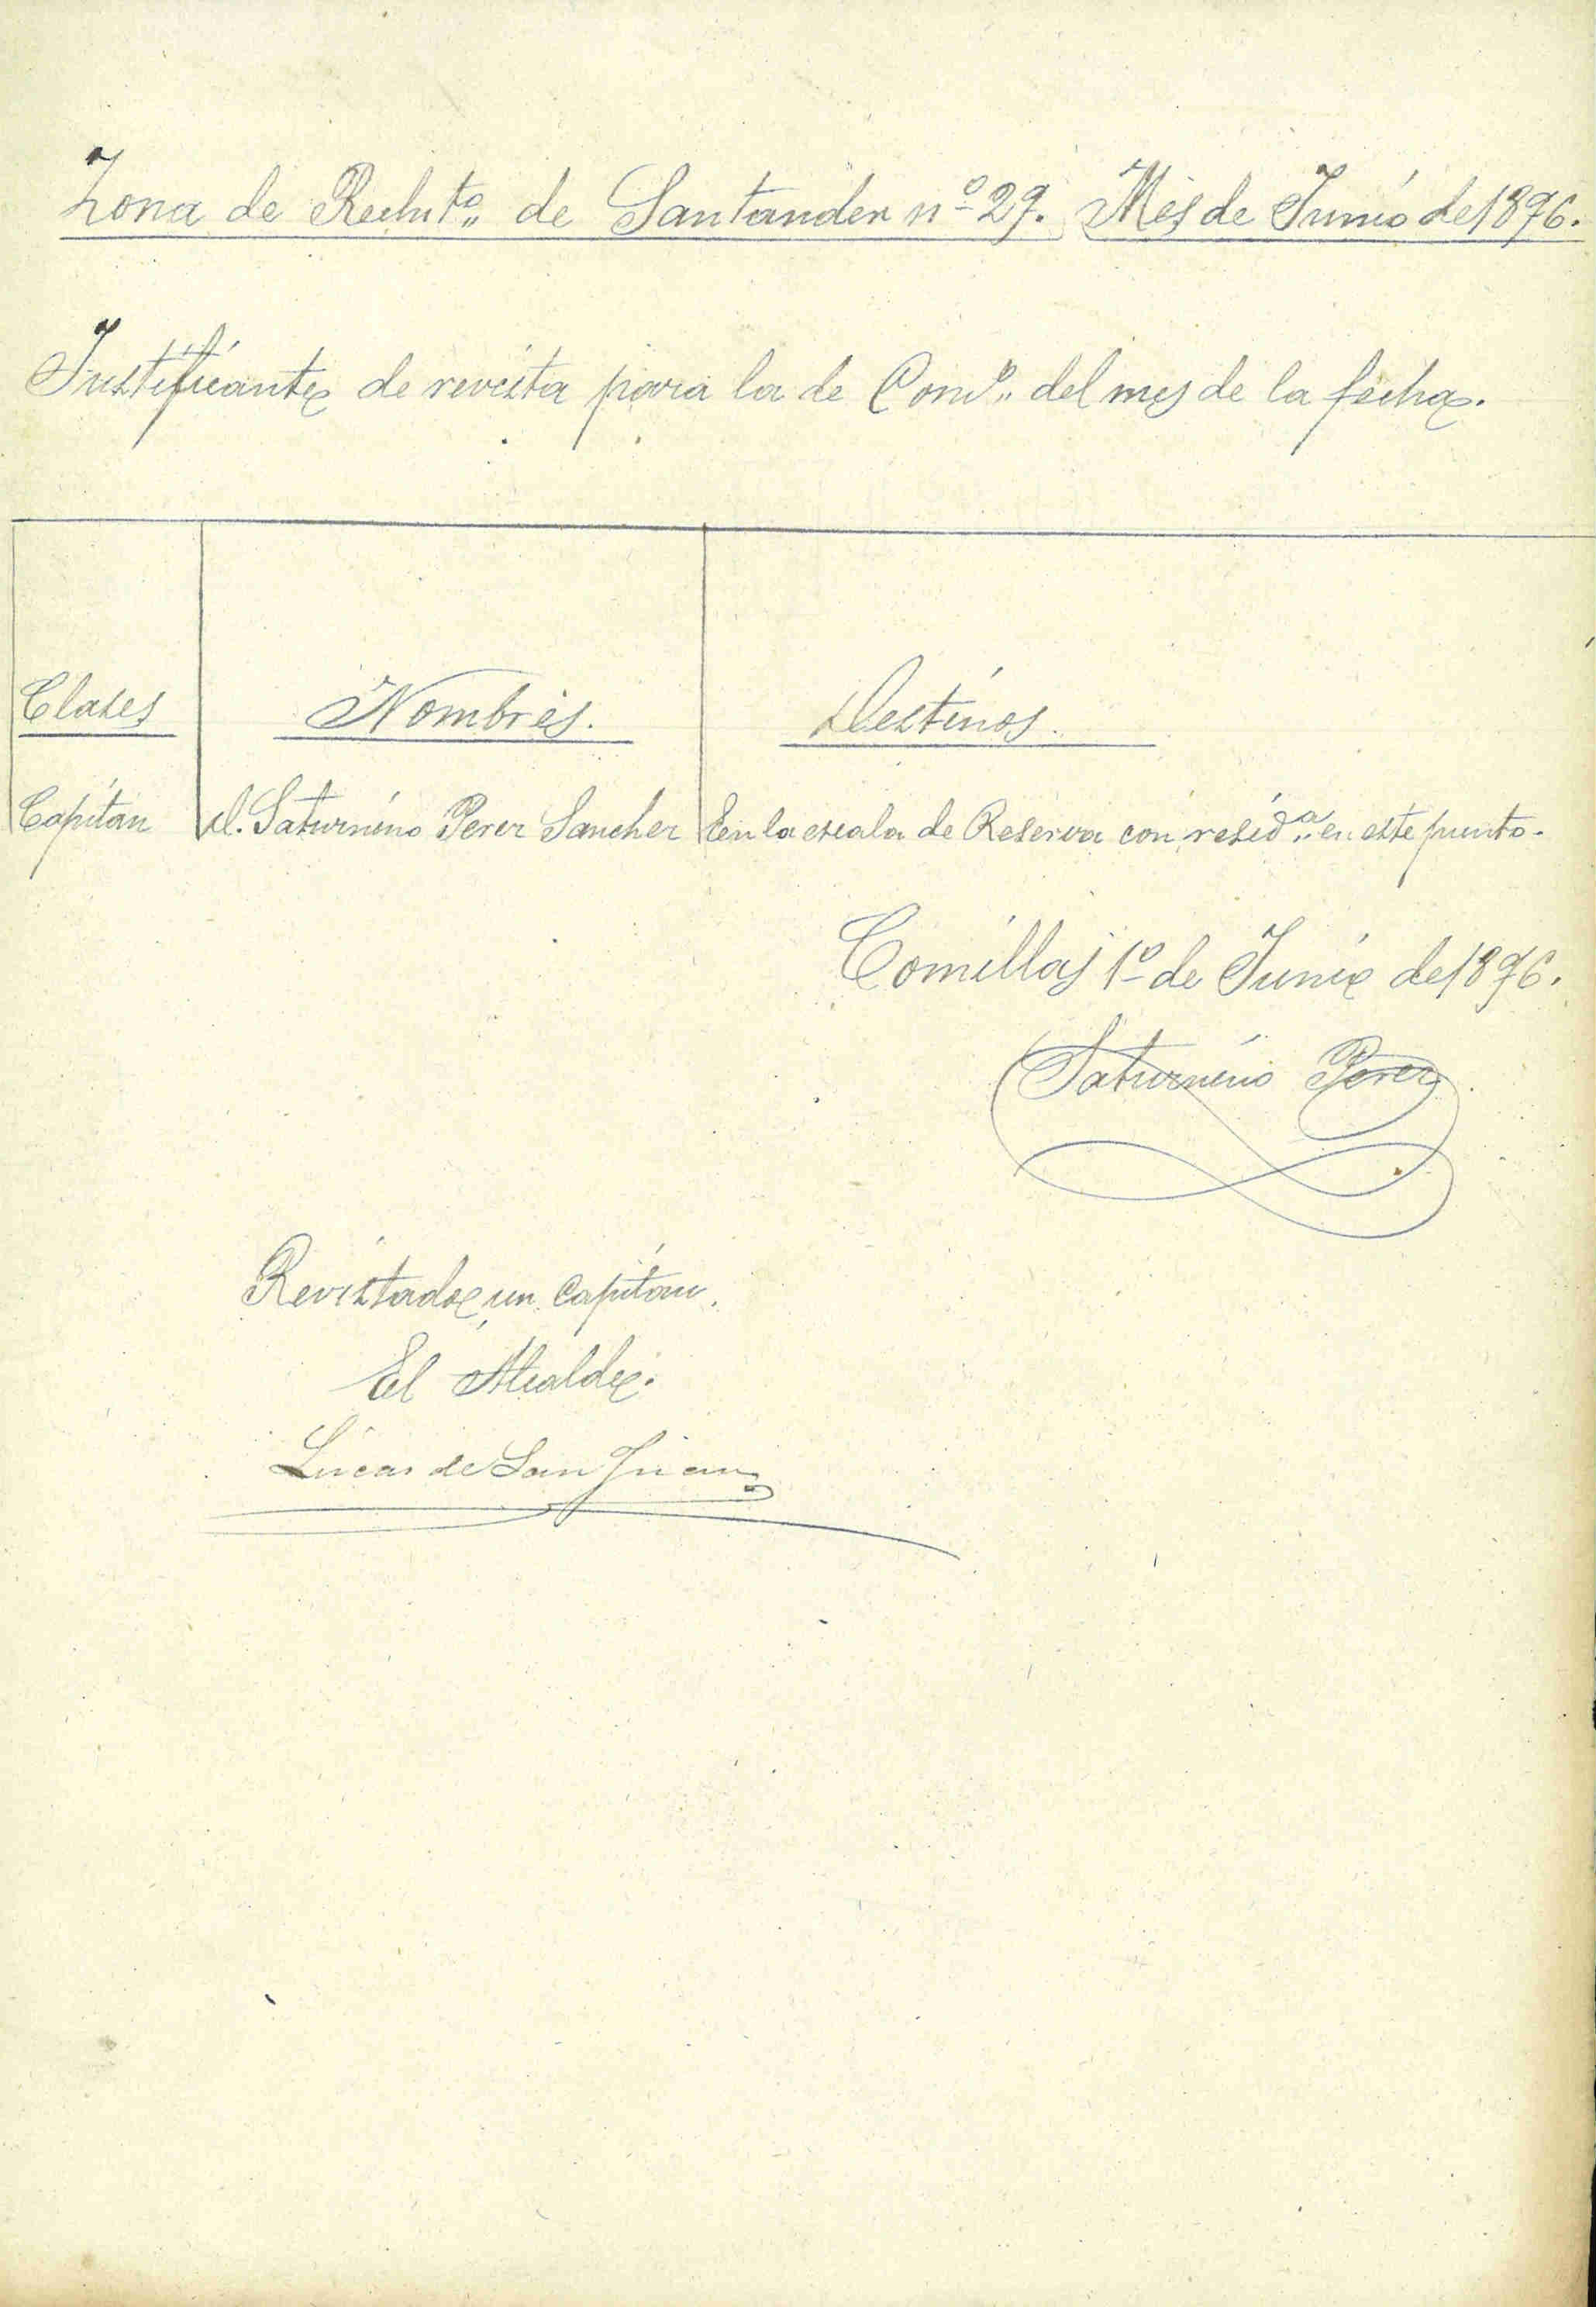 Zona de Reclutº de Santander nº 29. Mes de Junio de 1896.
Justificante de revista para la de Comº del mes de la fecha.
Clases Nombres. Destinos.
Capitan D. Saturnino Perez Sanchez En la escala de Reserva con residª en este punto.
Comillas 1º de Junio de 1896.
Saturnino Perez
Revistado un Capitan.
El Alcalde.
Lucas de San Juan